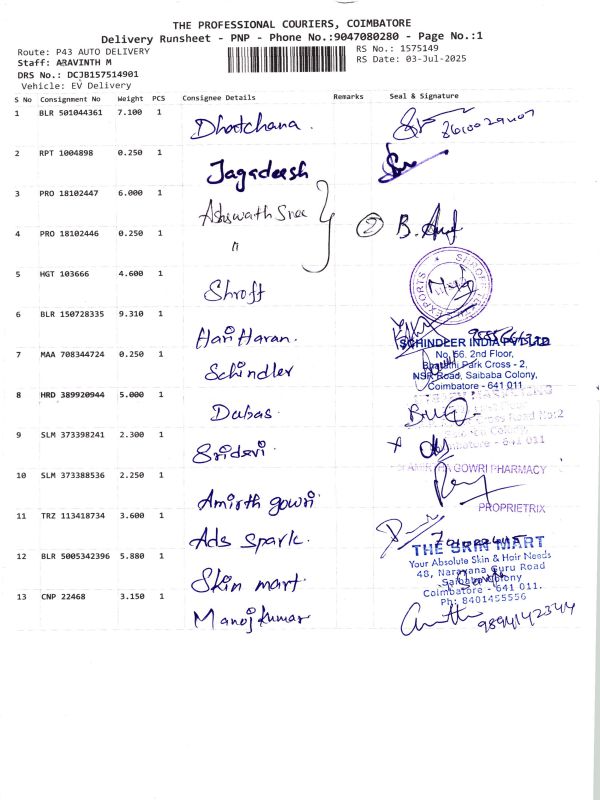 THE PROFESSIONAL COURIERS, COIMBATORE
Delivery Runsheet - PNP - Phone No.:9047080280 - Page No.:1
Route: P43 AUTO DELIVERY
RS No.: 1575149
Staff: ARAVINTH M
RS Date: 03-Jul-2025
DRS No.: DCJB157514901
Vehicle: EV Delivery
S No Consignment No Weight PCS Consignee Details Remarks Seal & Signature
1 BLR 501044361 7.100 1
Dhatchana.
2 RPT 1004898 0.250 1
Jagadeesh
3 PRO 18102447 6.000 1
Ashwath Sree
4 PRO 18102446 0.250 1
" 2 B.
5 HGT 103666 4.600 1
EXPORTS
Shroff
6 BLR 150728335 9.310 1
Hari Haran.
SCHINDLER INDIA PVT LTD
7 MAA 708344724 0.250 1
No. 56, 2nd Floor,
Bharathi Park Cross - 2,
Schindler
NSR Road, Saibaba Colony,
Coimbatore - 641 011
8 HRD 389920944 5.000 1
Dubas
Road No:2
9 SLM 373398241 2.300 1
Coimbatore - 641 011
Sridevi
10 SLM 373388536 2.250 1
GOWRI PHARMACY
Amirth gowri
PROPRIETRIX
11 TRZ 113418734 3.600 1
Ads Spark.
12 BLR 5005342396 5.880 1
THE SKIN MART
Your Absolute Skin & Hair Needs
48, Narayana Guru Road
Skin mart.
Saibaba Colony
Coimbatore - 641 011.
13 CNP 22468 3.150 1
Ph: 8401455556
Manoj kumar
9894142344